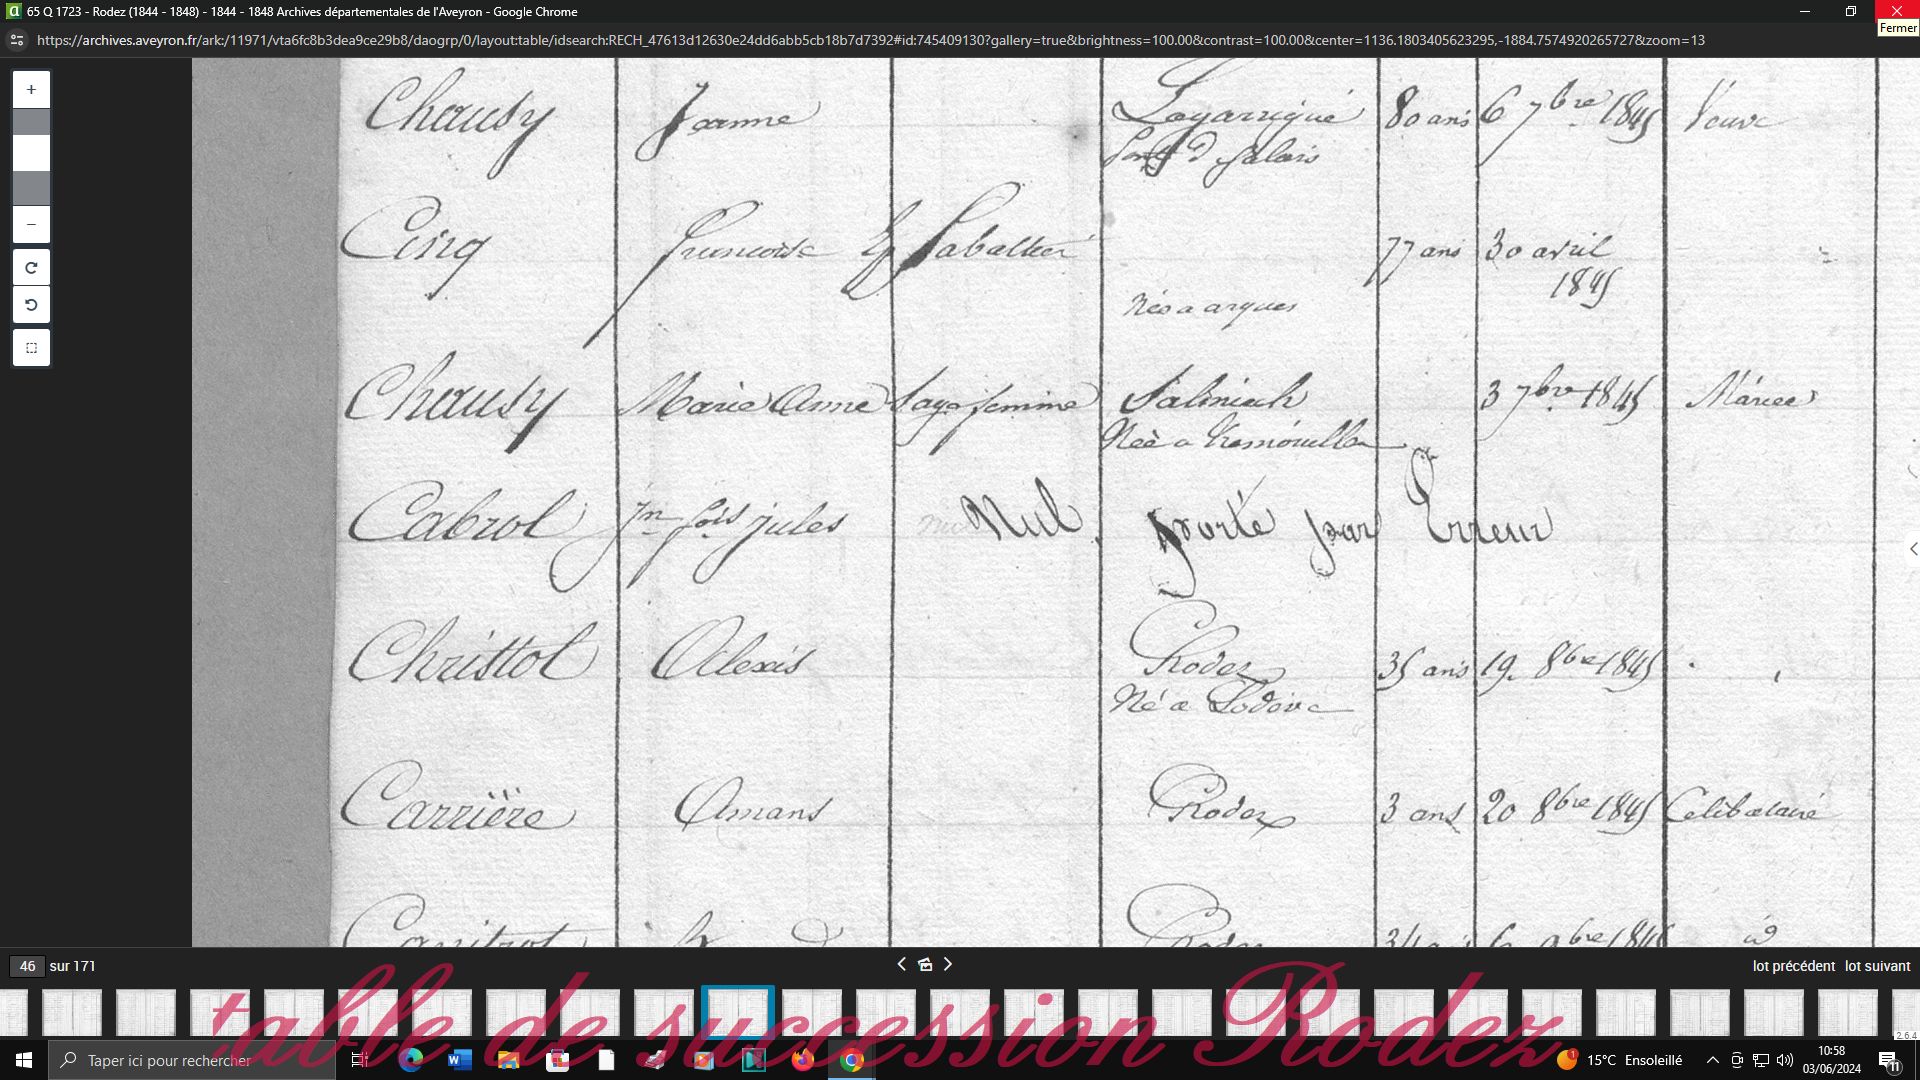 65 Q 1723 - Rodez (1844 - 1848) - 1844 - 1848 Archives départementales de l'Aveyron - Google Chrome
https://archives.aveyron.fr/ark:/11971/vta6fc8b3dea9ce29b8/daogrp/0/layout:table/idsearch:RECH_47613d12630e24dd6abb5cb18b7d7392#id:745409130?gallery=true&brightness=100.00&contrast=100.00&center=1136.1803405623295,-1884.757492026572&zoom=13
Fermer
Chausy Jeanne Lagarrigue 80 ans 6 7bre 1845 Veuve
Cinq Francoise Ep Sabathier 77 ans 30 avril
1845
Chausy Marie Anne Sage femme 3 7bre 1845 Mariée
Née a
Cabrol Jn fois jules Nul porté par Erreur
Christol Alexis Rodez 35 ans 19 8bre 1845
Né a Lodève
Carrière Amans Rodez 3 ans 20 8bre 1845 Celibataire
Rodez
46 sur 171
lot précédent lot suivant
table de succession Rodez
2.6.4
Taper ici pour rechercher
1
15°C Ensoleillé
10:58
03/06/2024
11